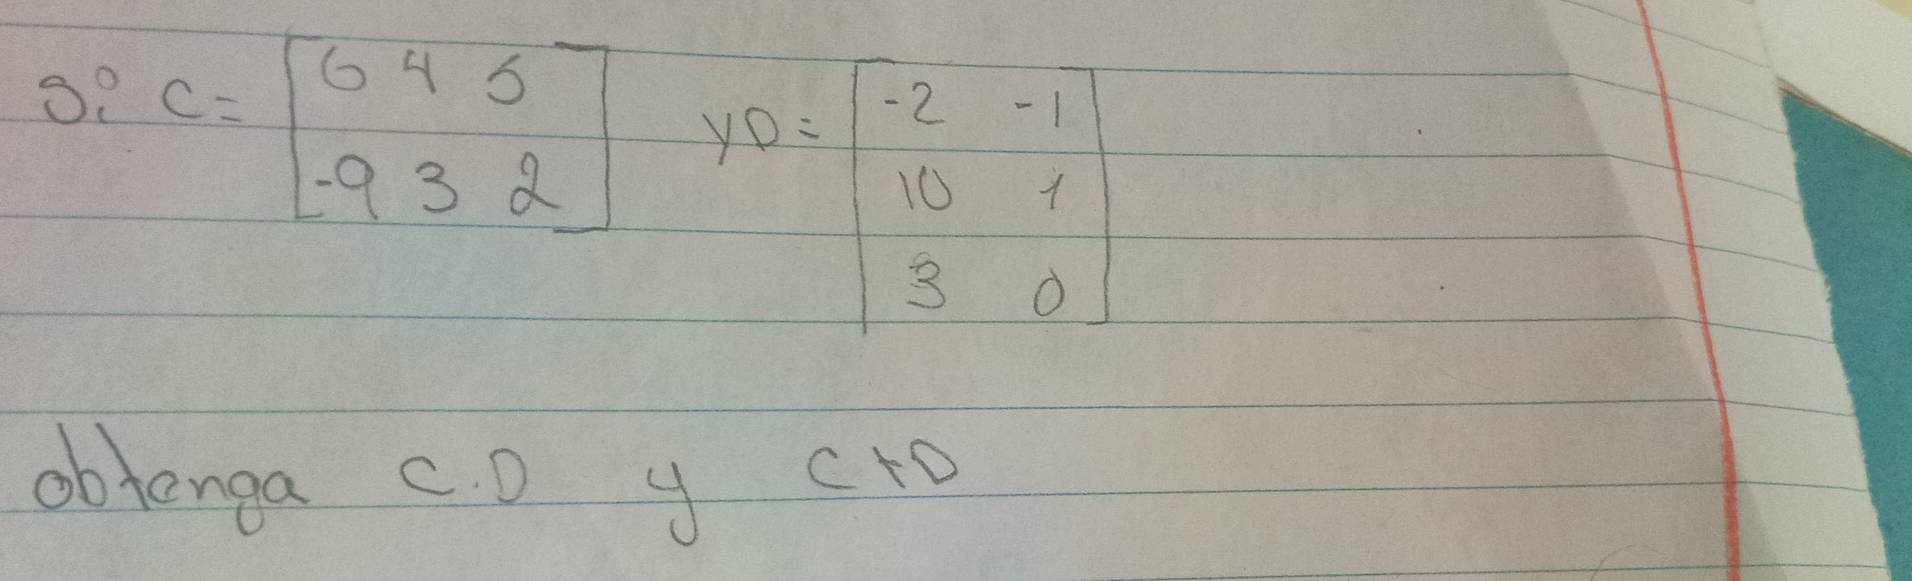 Si C= [6 4 5 yD= [-2 -1
-9 3 2] 10 1
3 0]
obtenga C.D y C+D